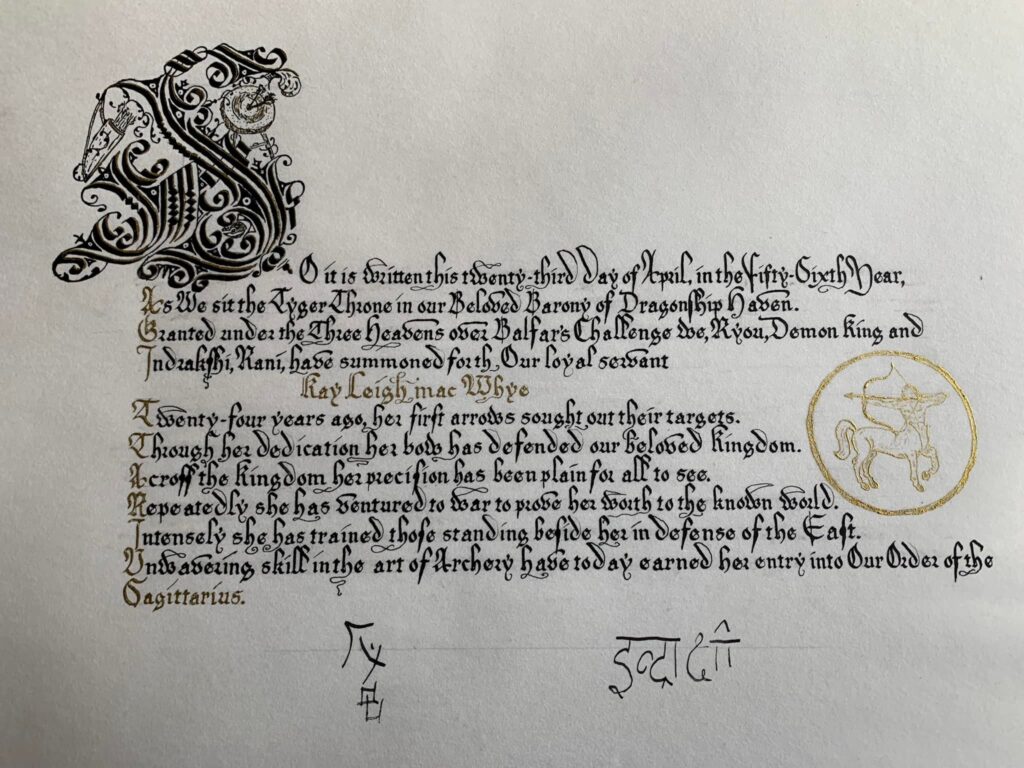 SO it is written this twenty-third Day of April, in the Fifty-Sixth Year,
As We sit the Tyger Throne in our Beloved Barony of Dragonship Haven.
Granted under the Three Heavens over Balfar's Challenge we, Ryou, Demon King and
Indrakshi, Rani, have summoned forth, Our loyal servant
Kay Leigh mac Whye
Twenty-four years ago, her first arrows sought out their targets.
Through her dedication her bow has defended our beloved Kingdom.
Acroſſ the Kingdom her precision has been plain for all to see.
Repeatedly she has ventured to war to prove her worth to the known world.
Intensely she has trained those standing beside her in defense of the Eaſt.
Unwavering skill in the art of Archery have today earned her entry into Our Order of the
Sagittarius.
इन्द्राक्षी